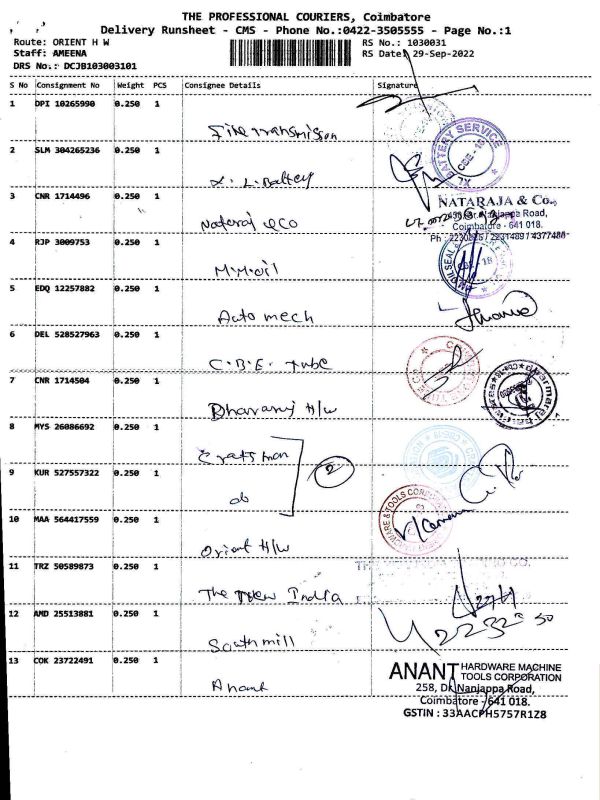 THE PROFESSIONAL COURIERS, Coimbatore
Delivery Runsheet - CMS - Phone No.:0422-3505555 - Page No.:1
Route: ORIENT H W
RS No.: 1030031
Staff: AMEENA
RS Date: 29-Sep-2022
DRS No.: DCJB103003101
S No Consignment No Weight PCS Consignee Details Signature
1 DPI 10265990 0.250 1
Fine transmission
2 SLM 304265236 0.250 1
X. L. Battery
XL BATTERY SERVICE
CBE - 18
3 CNR 1714496 0.250 1
Nataraj &co
NATARAJA & Co.,
Nanjappa Road,
Coimbatore - 641 018.
Ph : 2230826 / 2231489 / 4377488
4 RJP 3009753 0.250 1
M.M.oil
CBE - 18
5 EDQ 12257882 0.250 1
Auto mech
6 DEL 528527963 0.250 1
C.B.E. tube
7 CNR 1714504 0.250 1
Dharani H/w
8 MYS 26086692 0.250 1
2
9 KUR 527557322 0.250 1
do
10 MAA 564417559 0.250 1
Orient H/w
11 TRZ 50589873 0.250 1
The New India
12 AMD 25513881 0.250 1
South mill
13 COK 23722491 0.250 1
Anant
ANANT HARDWARE MACHINE
TOOLS CORPORATION
258, Dr. Nanjappa Road,
Coimbatore - 641 018.
GSTIN : 33AACPH5757R1Z8